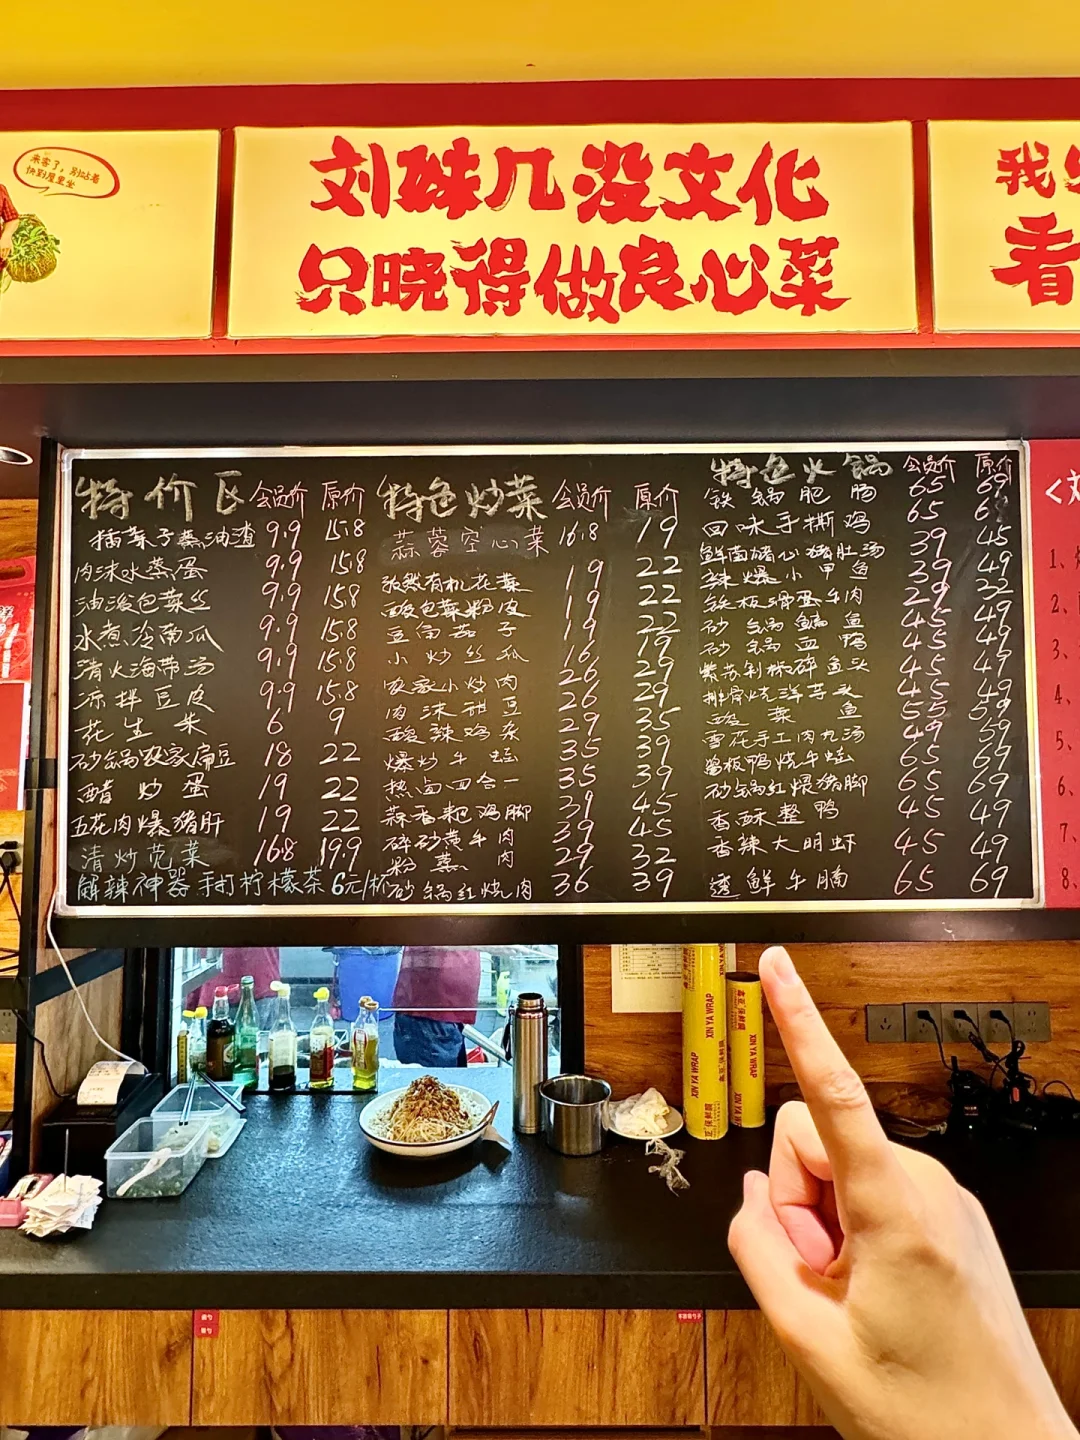 来客了，别站着
快到屋里坐
刘妹几没文化
只晓得做良心菜
我
看
特价区 会员价 原价
擂茄子蒸油渣 9.9 15.8
肉沫水蒸蛋 9.9 15.8
油渣包菜丝 9.9 15.8
水煮冷南瓜 9.9 15.8
清火海带汤 9.9 15.8
凉拌豆皮 9.9 15.8
花生米 6 9
砂锅农家扁豆 18 22
醋炒蛋 19 22
五花肉爆猪肝 19 22
清炒苋菜 16.8 19.9
解辣神器 手打柠檬茶 6元/杯
特色炒菜 会员价 原价
蒜蓉空心菜 16.8 19
孜然有机花菜 19 22
酸包菜粉皮 19 22
豆角茄子 19 22
小炒丝瓜 16 19
农家小炒肉 26 29
肉沫甜豆 26 29
酸辣鸡杂 29 35
爆炒牛蛙 35 39
热卤四合一 35 39
蒜香粑鸡脚 39 45
碎砂黄牛肉 39 45
粉蒸肉 29 32
砂锅红烧肉 36 39
特色火锅 会员价 原价
铁锅肥肠 65 69
四味手撕鸡 65
鲜菌猪心猪肚汤 39 45
辣爆小甲鱼 39 49
铁板滑蛋牛肉 29 32
砂锅鳊鱼 45 49
砂锅血鸭 45 49
紫苏剁椒碎鱼头 45 49
排骨炖洋芋头 45 49
酸菜鱼 55 59
雪花手工肉丸汤 49 59
酱板鸭烧牛蛙 65 69
砂锅红煨猪脚 65 69
香酥整鸭 45 49
香辣大明虾 45 49
透鲜牛腩 65 69
1、
2、
3、
4、
5、
6、
7、
8、
XIN YA WRAP
XIN YA WRAP
XIN YA WRAP